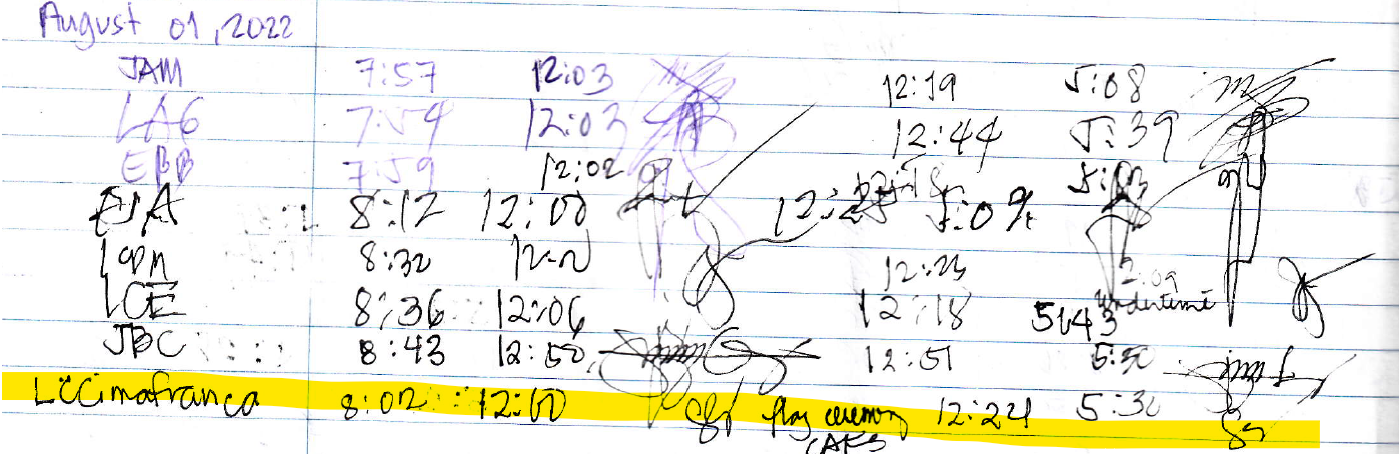 August 01, 2022
JAM 7:57 12:03 12:19 5:08
LAG 7:54 12:03 12:44 5:39
EBB 7:59 12:02 12:18
EJA 8:12 12:00 12:25 5:09
8:32 12:23 2:09
LCE 8:36 12:06 12:18 5:43 Undertime
JBC 8:43 12:50 12:51 5:30
LCCimafranca 8:02 12:00 flag ceremony 12:24 5:30
CAFS